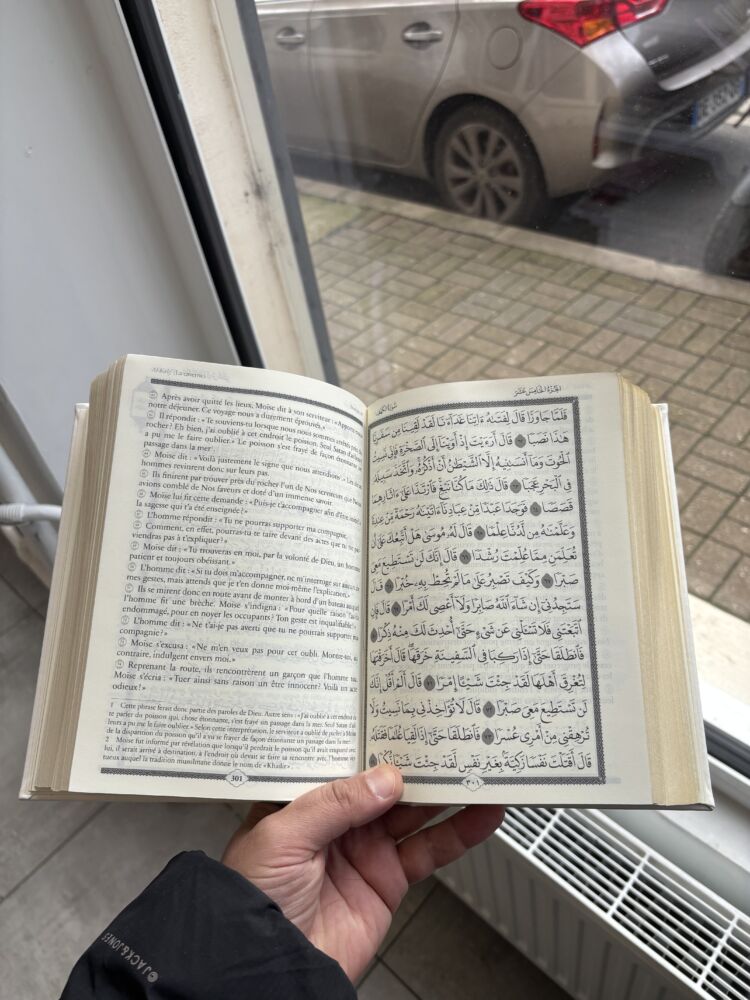 Après avoir quitté les lieux, Moïse dit à son serviteur : «Apporte-
notre déjeuner. Ce voyage nous a durement éprouvés.»
Il répondit : «Te souviens-tu lorsque nous nous sommes arrêtés près du
rocher? Eh bien, j'ai oublié à cet endroit le poisson. Seul Satan d'ailleurs
a pu me le faire oublier.» Le poisson s'est frayé de façon étonnante un
passage dans la mer
Moïse dit : «Voilà justement le signe que nous attendions.» Les deux
hommes revinrent donc sur leurs pas.
Ils finirent par trouver près du rocher l'un de Nos serviteurs que Nous
avions comblé de Nos faveurs et doté d'un immense savoir.
Moïse lui fit cette demande : «Puis-je t'accompagner afin d'être
la sagesse qui t'a été enseignée?»
L'homme répondit : «Tu ne pourras supporter ma compagnie.
Comment, en effet, pourrais-tu te taire devant des actes que tu ne
viendras pas à t'expliquer?»
Moïse dit : «Tu trouveras en moi, par la volonté de Dieu, un homme
patient et toujours obéissant.»
L'homme dit : «Si tu dois m'accompagner, ne m'interroge sur aucun de
mes gestes, mais attends que je t'en donne moi-même l'explication.»
Ils se mirent donc en route avant de monter à bord d'un bateau auquel
l'homme fit une brèche. Moïse s'indigna : «Pour quelle raison l'as-tu
endommagé, pour en noyer les occupants? Ton geste est inqualifiable!»
L'homme dit : «Ne t'ai-je pas averti que tu ne pourrais supporter ma
compagnie?»
Moïse s'excusa : «Ne m'en veux pas pour cet oubli. Montre-toi, au
contraire, indulgent envers moi.»
Reprenant la route, ils rencontrèrent un garçon que l'homme tua.
Moïse s'écria : «Tuer ainsi sans raison un être innocent? Voilà un acte
odieux!»
1 Cette phrase ferait donc partie des paroles de Dieu. Autre sens : «J'ai oublié à cet endroit de
te parler du poisson qui, chose étonnante, s'est frayé un passage dans la mer. Seul Satan d'ail-
leurs a pu me le faire oublier.» Selon cette interprétation, le serviteur a oublié de parler à Moïse
de la disparition du poisson qu'il a vu se frayer de façon étonnante un passage dans la mer.
2 Moïse fut informé par révélation que lorsqu'il perdrait le poisson qu'il avait emporté avec
lui, il serait arrivé à destination, à l'endroit où devait se faire sa rencontre avec l'homme ver-
tueux auquel la tradition musulmane donne le nom de «Khadir».
301
سُورَةُ الكَهْفِ
الجُزْءُ الخَامِسَ عَشَرَ
فَلَمَّا جَاوَزَا قَالَ لِفَتَىٰهُ ءَاتِنَا غَدَآءَنَا لَقَدْ لَقِينَا مِن سَفَرِنَا
هَٰذَا نَصَبًا ٦٢ قَالَ أَرَءَيْتَ إِذْ أَوَيْنَآ إِلَى ٱلصَّخْرَةِ فَإِنِّى نَسِيتُ
ٱلْحُوتَ وَمَآ أَنسَىٰنِيهُ إِلَّا ٱلشَّيْطَٰنُ أَنْ أَذْكُرَهُۥ وَٱتَّخَذَ سَبِيلَهُۥ
فِى ٱلْبَحْرِ عَجَبًا ٦٣ قَالَ ذَٰلِكَ مَا كُنَّا نَبْغِ فَٱرْتَدَّا عَلَىٰٓ ءَاثَارِهِمَا
قَصَصًا ٦٤ فَوَجَدَا عَبْدًا مِّنْ عِبَادِنَآ ءَاتَيْنَٰهُ رَحْمَةً مِّنْ عِندِنَا
وَعَلَّمْنَٰهُ مِن لَّدُنَّا عِلْمًا ٦٥ قَالَ لَهُۥ مُوسَىٰ هَلْ أَتَّبِعُكَ عَلَىٰٓ أَن
تُعَلِّمَنِ مِمَّا عُلِّمْتَ رُشْدًا ٦٦ قَالَ إِنَّكَ لَن تَسْتَطِيعَ مَعِىَ
صَبْرًا ٦٧ وَكَيْفَ تَصْبِرُ عَلَىٰ مَا لَمْ تُحِطْ بِهِۦ خُبْرًا ٦٨ قَالَ
سَتَجِدُنِىٓ إِن شَآءَ ٱللَّهُ صَابِرًا وَلَآ أَعْصِى لَكَ أَمْرًا ٦٩ قَالَ فَإِنِ
ٱتَّبَعْتَنِى فَلَا تَسْـَٔلْنِى عَن شَىْءٍ حَتَّىٰٓ أُحْدِثَ لَكَ مِنْهُ ذِكْرًا ٧٠
فَٱنطَلَقَا حَتَّىٰٓ إِذَا رَكِبَا فِى ٱلسَّفِينَةِ خَرَقَهَا قَالَ أَخَرَقْتَهَا
لِتُغْرِقَ أَهْلَهَا لَقَدْ جِئْتَ شَيْـًٔا إِمْرًا ٧١ قَالَ أَلَمْ أَقُلْ إِنَّكَ
لَن تَسْتَطِيعَ مَعِىَ صَبْرًا ٧٢ قَالَ لَا تُؤَاخِذْنِى بِمَا نَسِيتُ وَلَا
تُرْهِقْنِى مِنْ أَمْرِى عُسْرًا ٧٣ فَٱنطَلَقَا حَتَّىٰٓ إِذَا لَقِيَا غُلَٰمًا فَقَتَلَهُۥ
قَالَ أَقَتَلْتَ نَفْسًا زَكِيَّةًۢ بِغَيْرِ نَفْسٍ لَّقَدْ جِئْتَ شَيْـًٔا نُّكْرًا
٣٠١
JACK&JONES